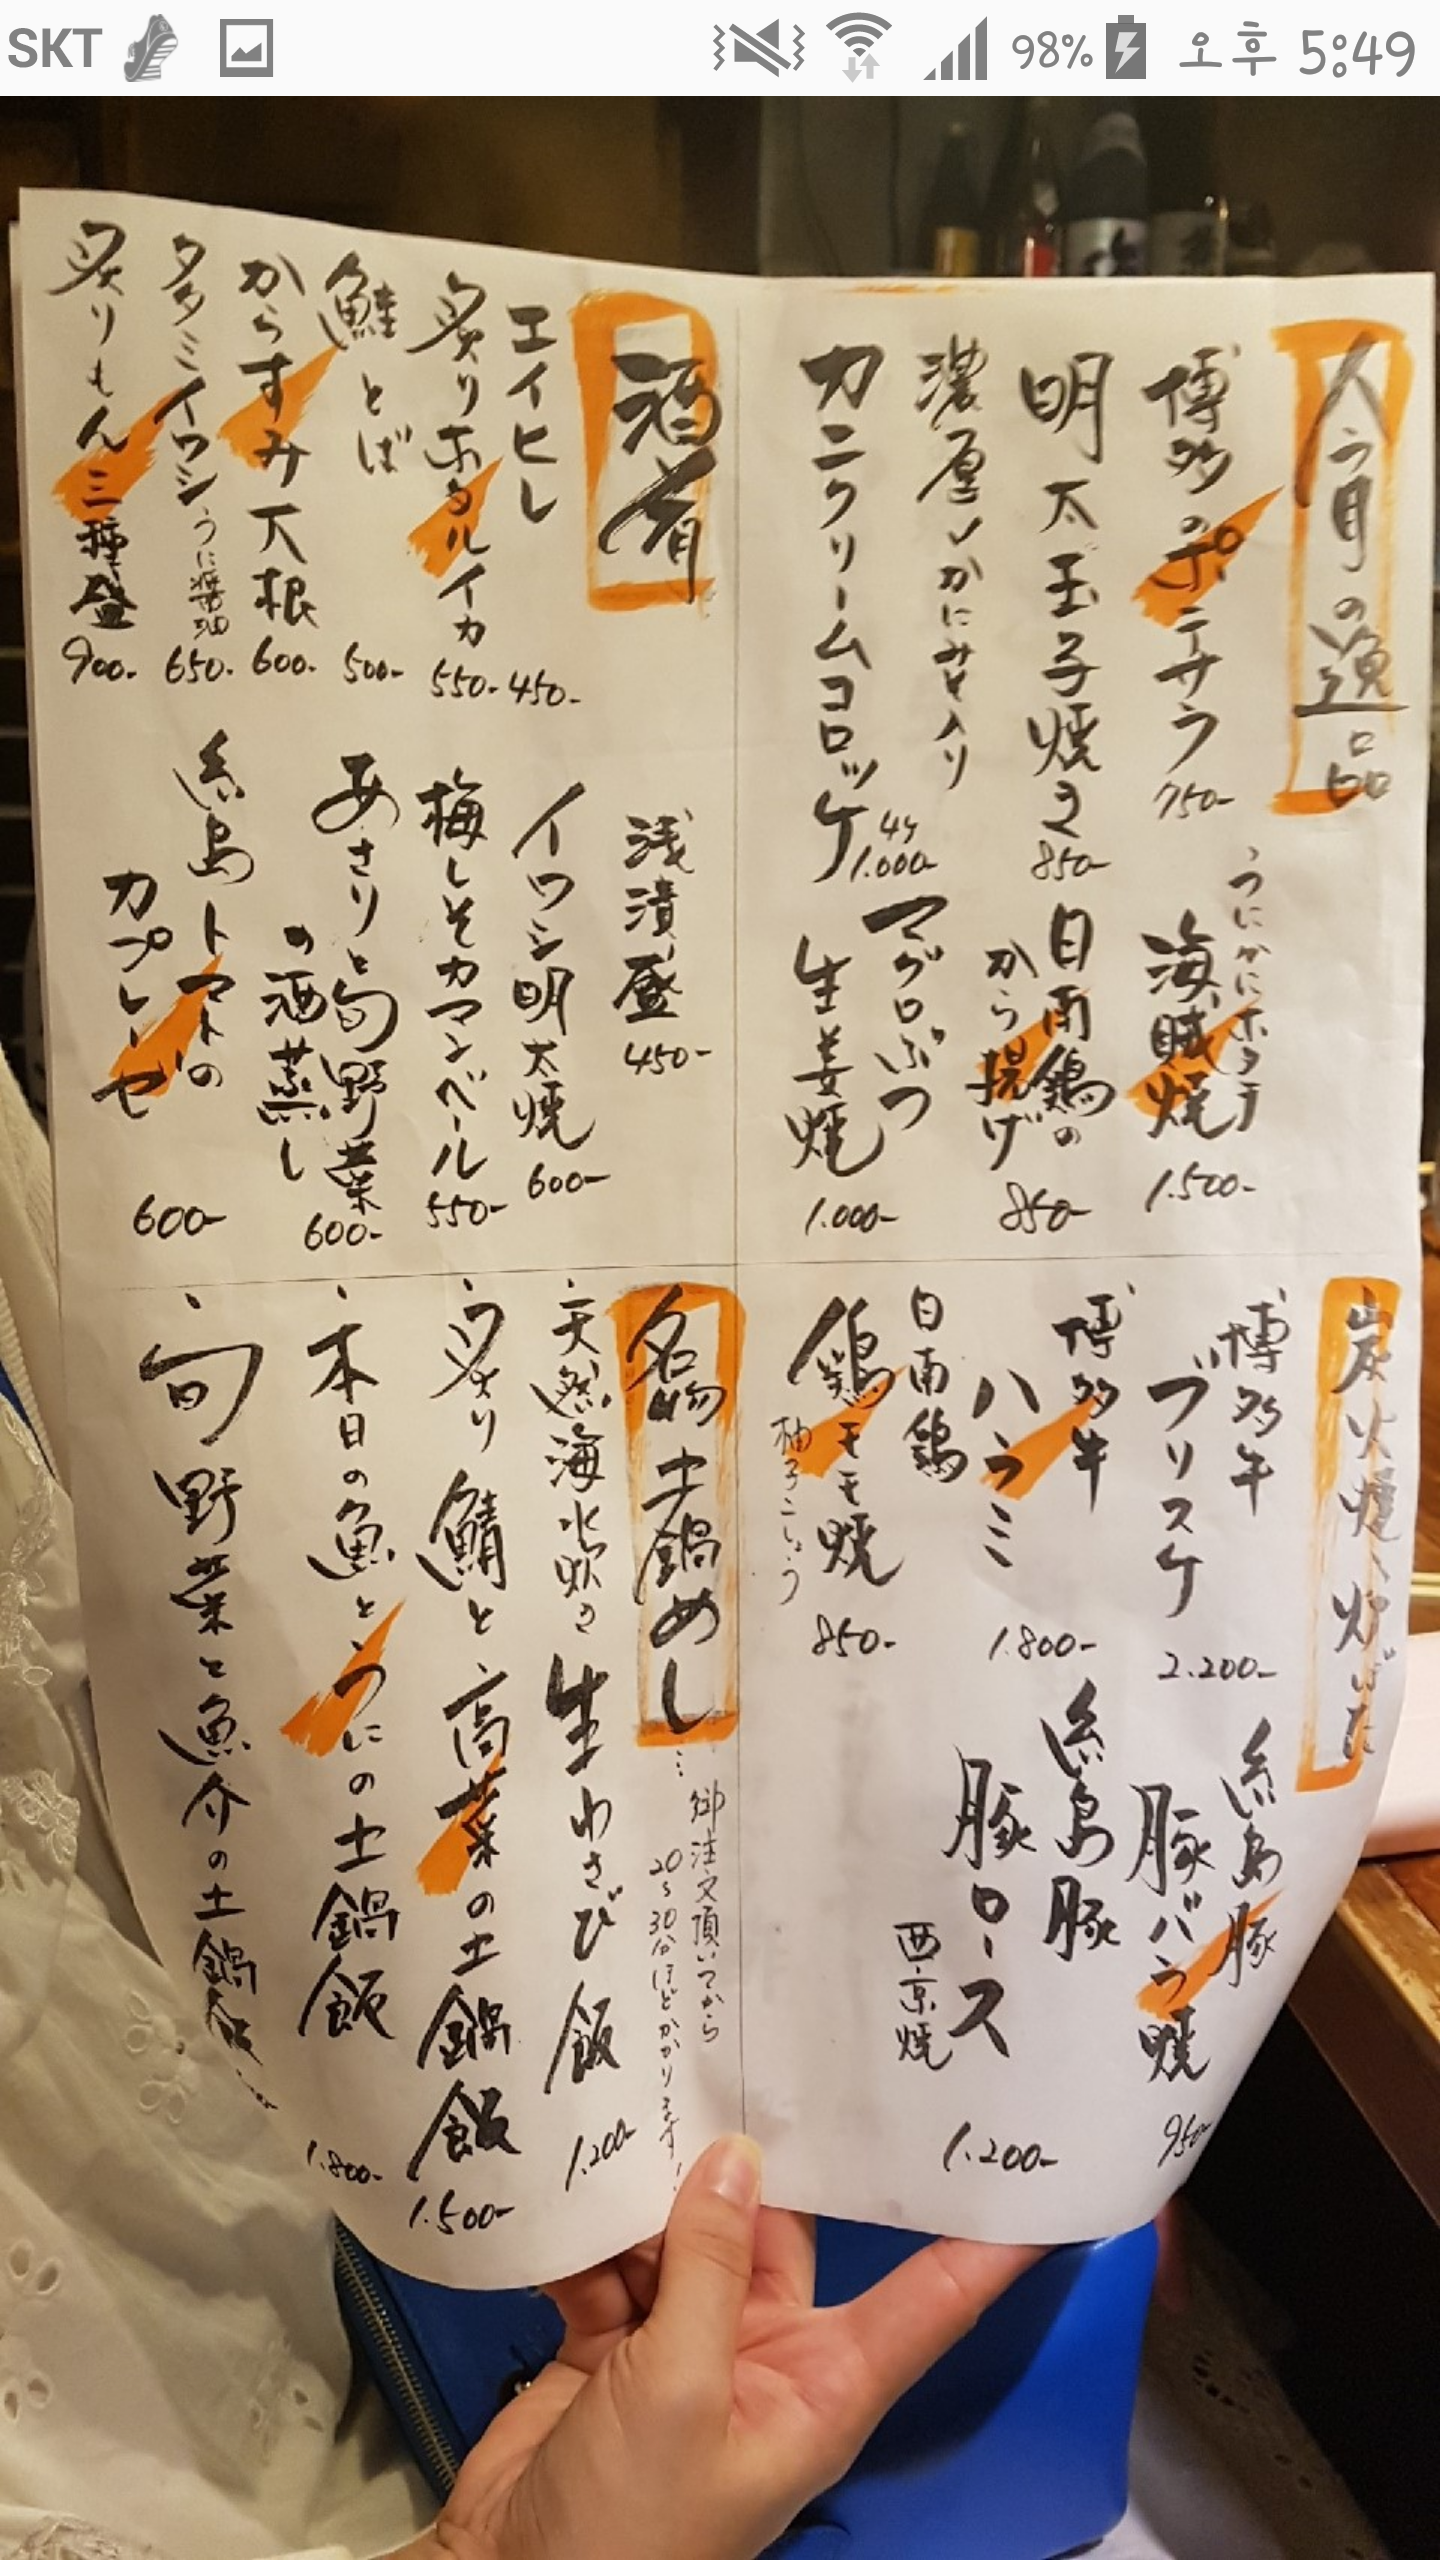 SKT
98%
오후 5:49
今月の逸品
博多のポテサラ
750-
明太玉子焼き
850-
濃厚いかにみそ入り
カニクリームコロッケ
4ケ
1.000-
うにかにホタテ
海賊焼
1.500-
日南鶏の
から揚げ
850-
マグロぶつ
生姜焼
1.000-
酒肴
エイヒレ
450-
炙りホタルイカ
550-
鮭とば
500-
からすみ大根
600-
タタミイワシうに醤油
650-
炙りもん三種盛
900-
浅漬盛
450-
イワシ明太焼
600-
梅しそカマンベール
550-
あさりと旬野菜
の酒蒸し
600-
糸島トマトの
カプレーゼ
600-
博多牛
ブリスケ
2.200-
博多牛
ハラミ
1.800-
日南鶏
鶏モモ焼
柚子こしょう
850-
糸島豚
豚バラ焼
950-
糸島豚
豚ロース
西京焼
1.200-
名物土鍋めし…
御注文頂いてから
20〜30分ほどかかります!
・天然海水炊き生わさび飯
1.200-
・炙り鯖と高菜の土鍋飯
1.500-
・本日の魚とうにの土鍋飯
1.800-
・旬野菜と魚介の土鍋飯